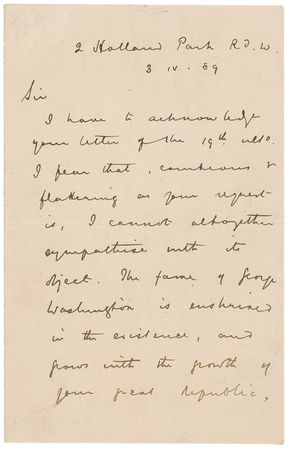 2 Holland Park Rd. W.
3 iv. 89
Sir
I have to acknowledge
your letter of the 19th ulto.
I fear that, courteous &
flattering as your request
is, I cannot altogether
sympathise with its
object. The fame of George
Washington is enshrined
in the existence, and
grows with the growth of
your great Republic,